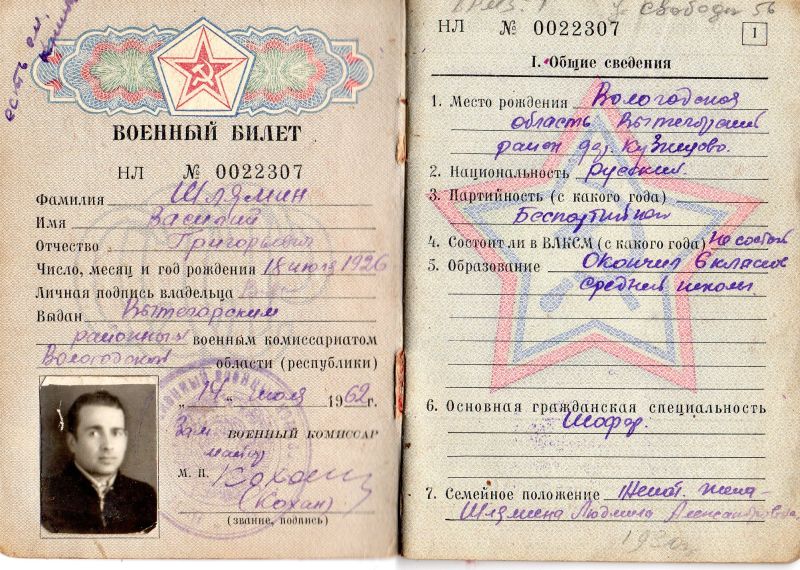 есть см.
ВОЕННЫЙ БИЛЕТ
НЛ № 0022307
Фамилия Шлямин
Имя Василий
Отчество Григорьевич
Число, месяц и год рождения 18 июля 1926
Личная подпись владельца
Выдан Вытегорским
районным военным комиссариатом
Вологодской области (республики)
„14“ июля 1962 г.
Зам. ВОЕННЫЙ КОМИССАР
майор
М. П. Кохан
(Кохан)
(звание, подпись)
Свободы 56
НЛ № 0022307 1
I. Общие сведения
1. Место рождения Вологодская
область Вытегорский
район дер. Кузнецово.
2. Национальность русский.
3. Партийность (с какого года)
Беспартийный
4. Состоит ли в ВЛКСМ (с какого года) Не состоит
5. Образование Окончил 6 классов
средней школы
6. Основная гражданская специальность
Шофер.
7. Семейное положение Женат. жена-
Шлямина Людмила Александровна